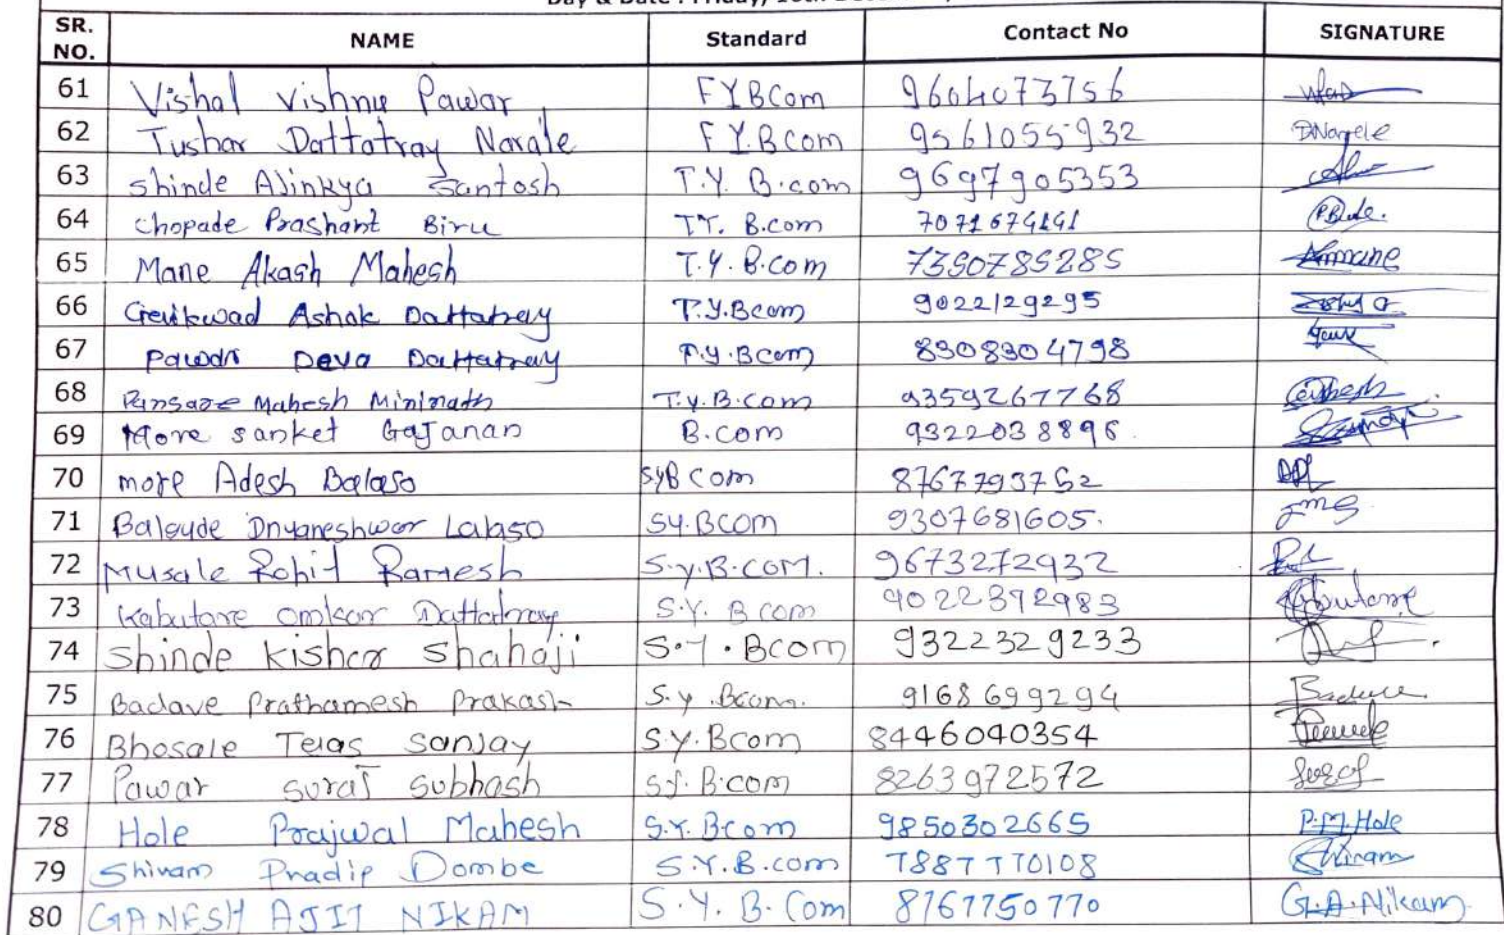 SR. NO. NAME Standard Contact No SIGNATURE
61 Vishal Vishnu Pawar FYBCom 9604073756
62 Tushar Dattatray Narale F.Y.BCom 9561055932 DNarele
63 Shinde Ajinkya Santosh T.Y. B.com 9697905353
64 Chopade Prashant Biru T.Y. B.com
65 Mane Akash Mahesh T.Y. B.com 7350785285 Ammane
66 Gaikwad Ashok Dattatray T.Y.Bcom 9022129295
67 Pawar Deva Dattatray T.Y.Bcom 8308304798
68 Pansare Mahesh Mininath T.y.B.com 9359267768
69 More sanket Gajanan B.com 9322038896
70 more Adesh Balaso SyB com 8767793752
71 Dnyaneshwar Lalaso SY.BCOM 9307681605.
72 Musale Rohit Ramesh S.y.B.COM. 9673272932
73 Kabutare omkar Dattatray S.Y. B com 9022392983 Kabutare
74 Shinde kishor Shahaji S.Y. Bcom 9322329233
75 Badave Prathamesh Prakash S.y .Bcom. 9168699294 Badave
76 Bhosale Tejas Sanjay S.Y.Bcom 8446040354
77 Pawar suraj subhash S.Y. B.com 8263972572 Suraj
78 Hole Prajwal Mahesh S.Y. Bcom 9850302665 P.M.Hole
79 Shivam Pradip Dombe S.Y.B.com 7887770108 Shivam
80 GANESH AJIT NIKAM S.Y. B. Com 8767750770 G.A.Nikam